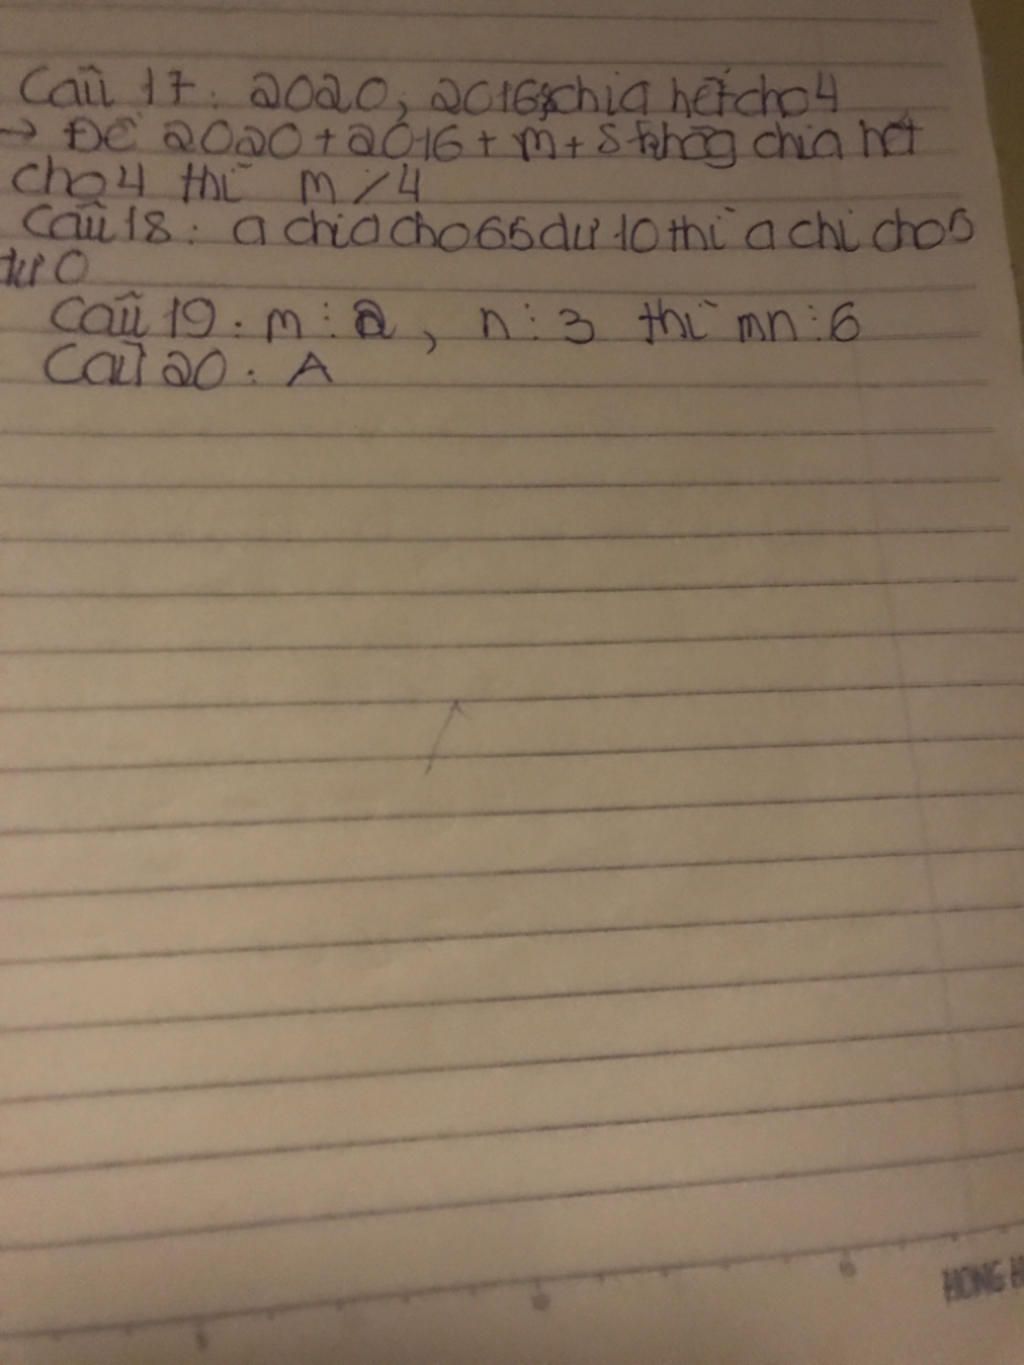 Câu 17: 2020, 2016 chia hết cho 4
→ Để 2020 + 2016 + m + 8 không chia hết
cho 4 thì m ⋮̸ 4
Câu 18: a chia cho 65 dư 10 thì a chi cho 5
dư 0
Câu 19: m ⋮ 2, n ⋮ 3 thì mn ⋮ 6
Câu 20: A
HONG H